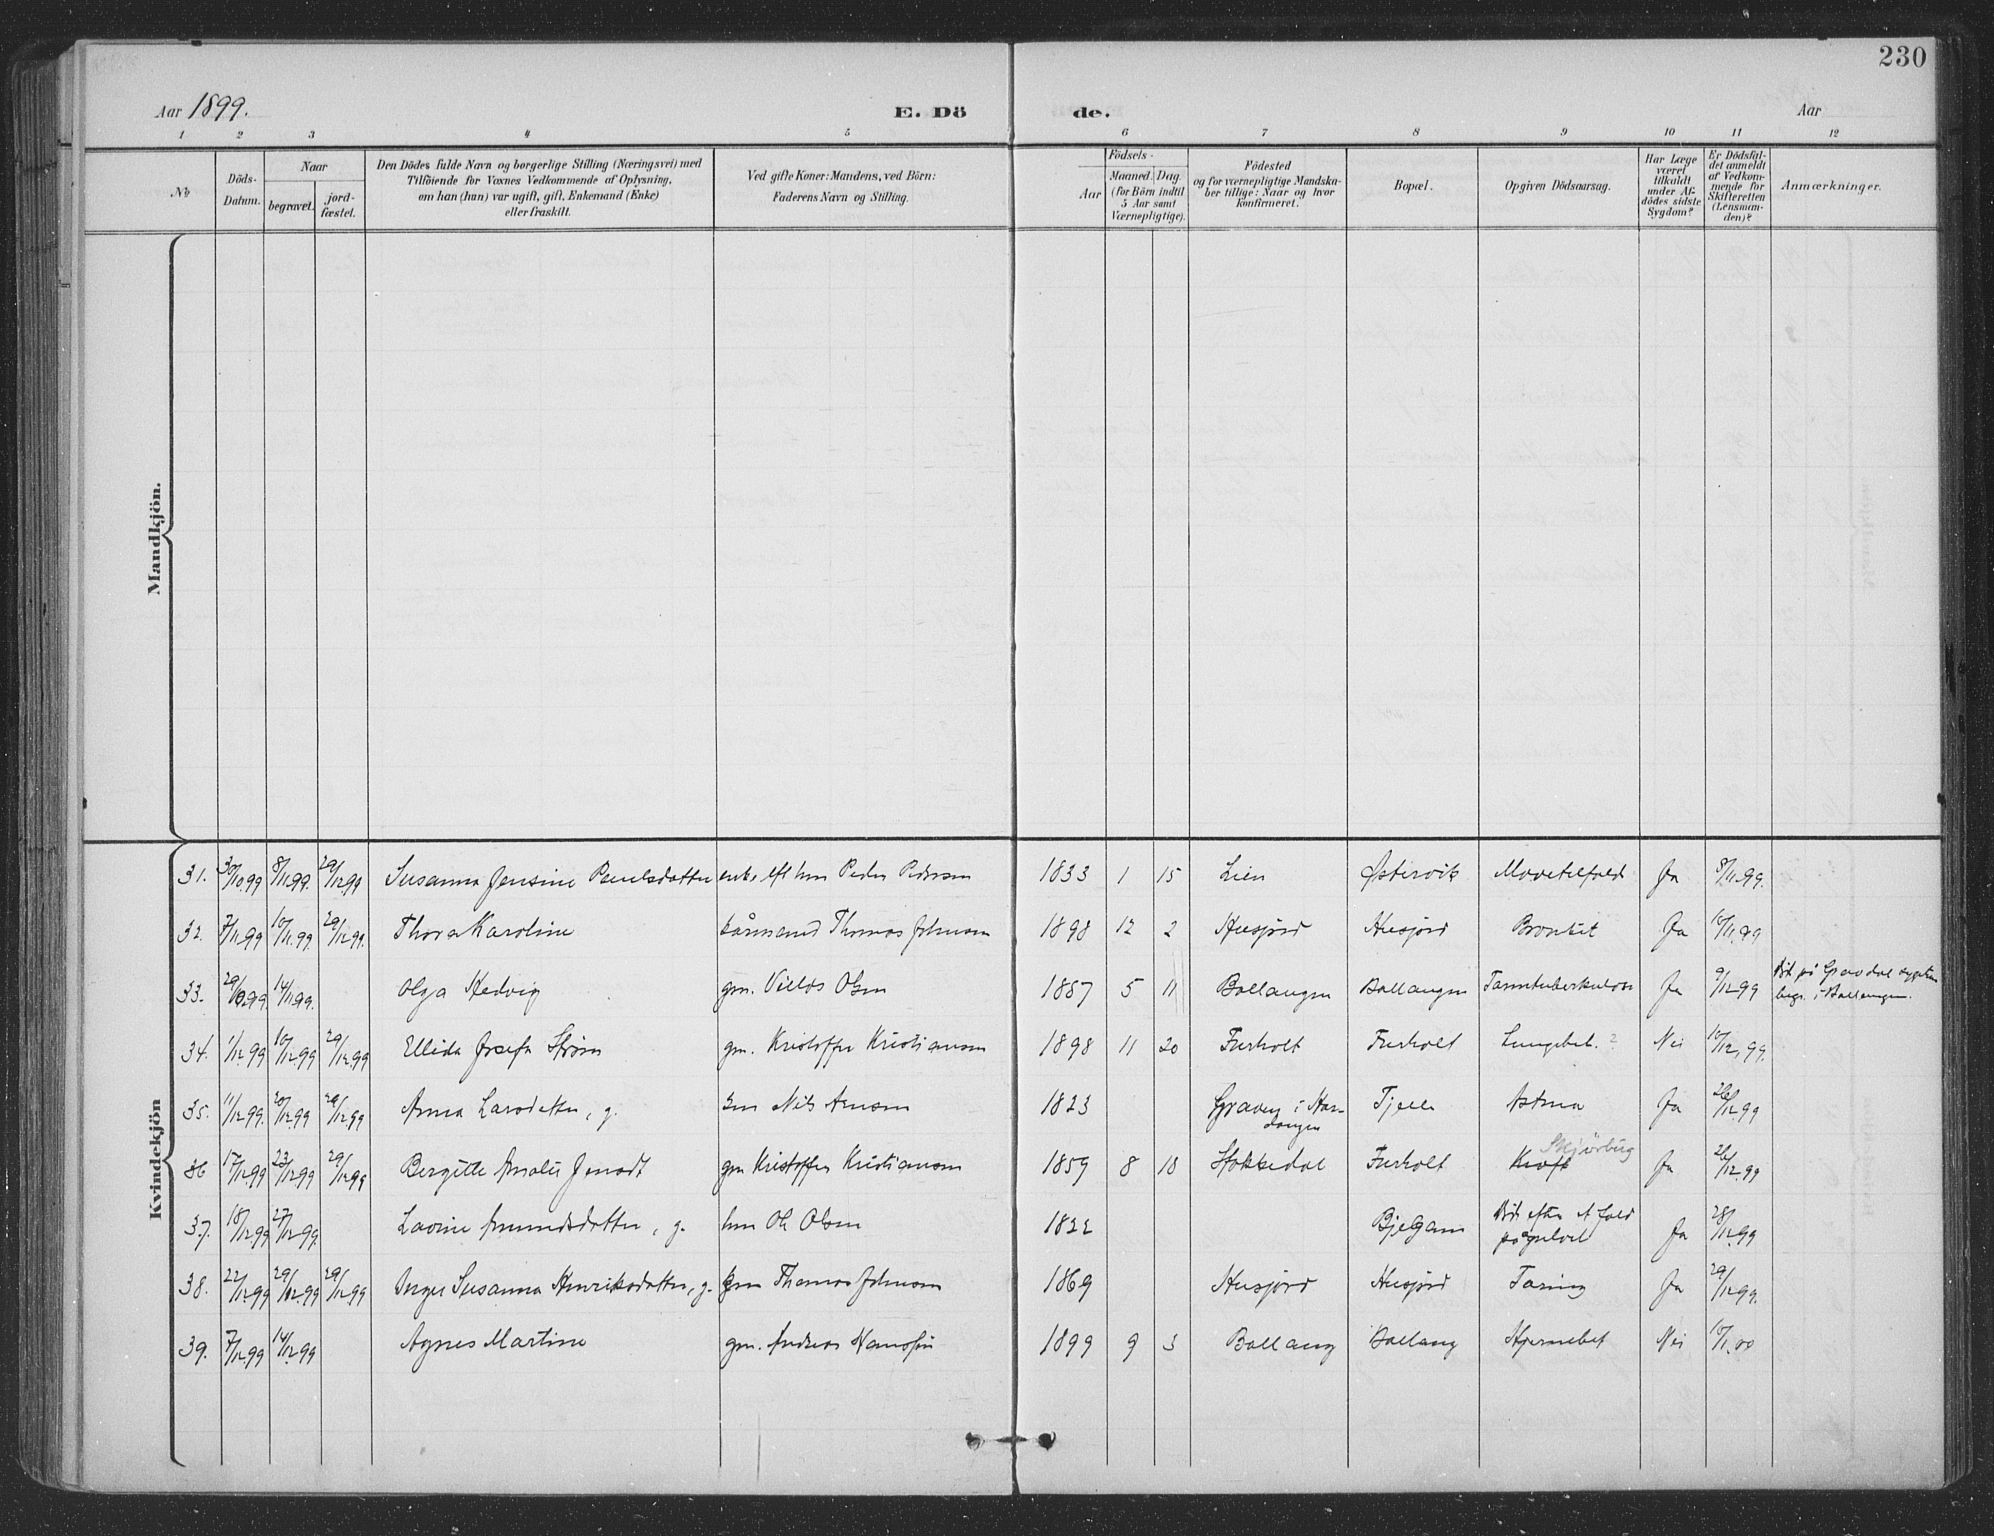 230
Aar 1899. E. Dö de. Aar
1 2 3 4 5 6 7 8 9 10 11 12
No
Döds-Datum.
Naar
begravet.
jord-fæstet.
Den Dödes fulde Navn og borgerlige Stilling (Næringsvei) med
Tilföiende for Voxnes Vedkommende af Oplysning,
om han (hun) var ugift, gift, Enkemand (Enke)
eller fraskilt.
Ved gifte Koner: Mandens, ved Börn:
Faderens Navn og Stilling.
Födsels-
Aar
Maaned. Dag.
(for Börn indtil
5 Aar samt
Værnepligtige).
Födested
og for værnepligtige Mandska-
ber tillige: Naar og hvor
konfirmeret.
Bopæl.
Opgiven Dödsaarsag.
Har Læge
været
tilkaldt
under Af-
dödes sidste
Sygdom?
Er Dödsfal-
det anmeldt
af Vedkom-
mende for
Skifteretten
(Lensman-
den)?
Anmærkninger.
Mandkjön.
Kvindekjön
31. 30/10 99 8/11 99. 29/12 99 Susanna Jensine Paulsdatter enke eft hm Peder Pedersen 1833 1 15 Lien Østervik Mavetilfald Ja 8/11 99.
32. 7/11 99 10/11 99 29/12 99. Thora Karoline Thomas Johnsen 1898 12 2 Husjord Husjord Bronkit Ja 10/11 99
33. 14/11 99. Olga Hedvig gm. Olsen 5 11 Ballangen Ballangen Tarmtuberkulose Ja 9/12 99 Död på Gravdal sygehus
begr. i Ballangen.
34. 1/12 99 10/12 99 29/12 99 Ellida Josefa Strøm gm. Kristoffer Kristiansen 1898 11 20 Furholt Furholt Lungebet. ? Nei 10/12 99.
35. 11/12 99. 20/12 99 29/12 99 Anna Larsdatter, g. hm Nils Arnesen 1823 Graven i Har-
danger Tjelle Astma Ja 26/12 99
36 17/12 99 23/12 99 29/12 99 Bergitte Jensdt gm Kristoffer Kristiansen 1859 8 18 Stokkedal Furholt Kræft Skjörbug Ja 26/12 99
37. 18/12 99 27/12 99. Lavine Amundsdatter, g. hm Ole Olsen 1822 Bjelgam Död efter et fald
på gulvet Ja 28/12 99
38. 22/12 99 29/12 99 29/12 99 Inger Susanna Henriksdatter, g. hm Thomas Johnsen 1869 Husjord Husjord Tæring Ja 29/12 99.
39. 7/12 99 14/12 99 Agnes Martine gm. Andreas Hansen 1899 9 3 Ballang Ballang Hjernebet Nei 10/1 00